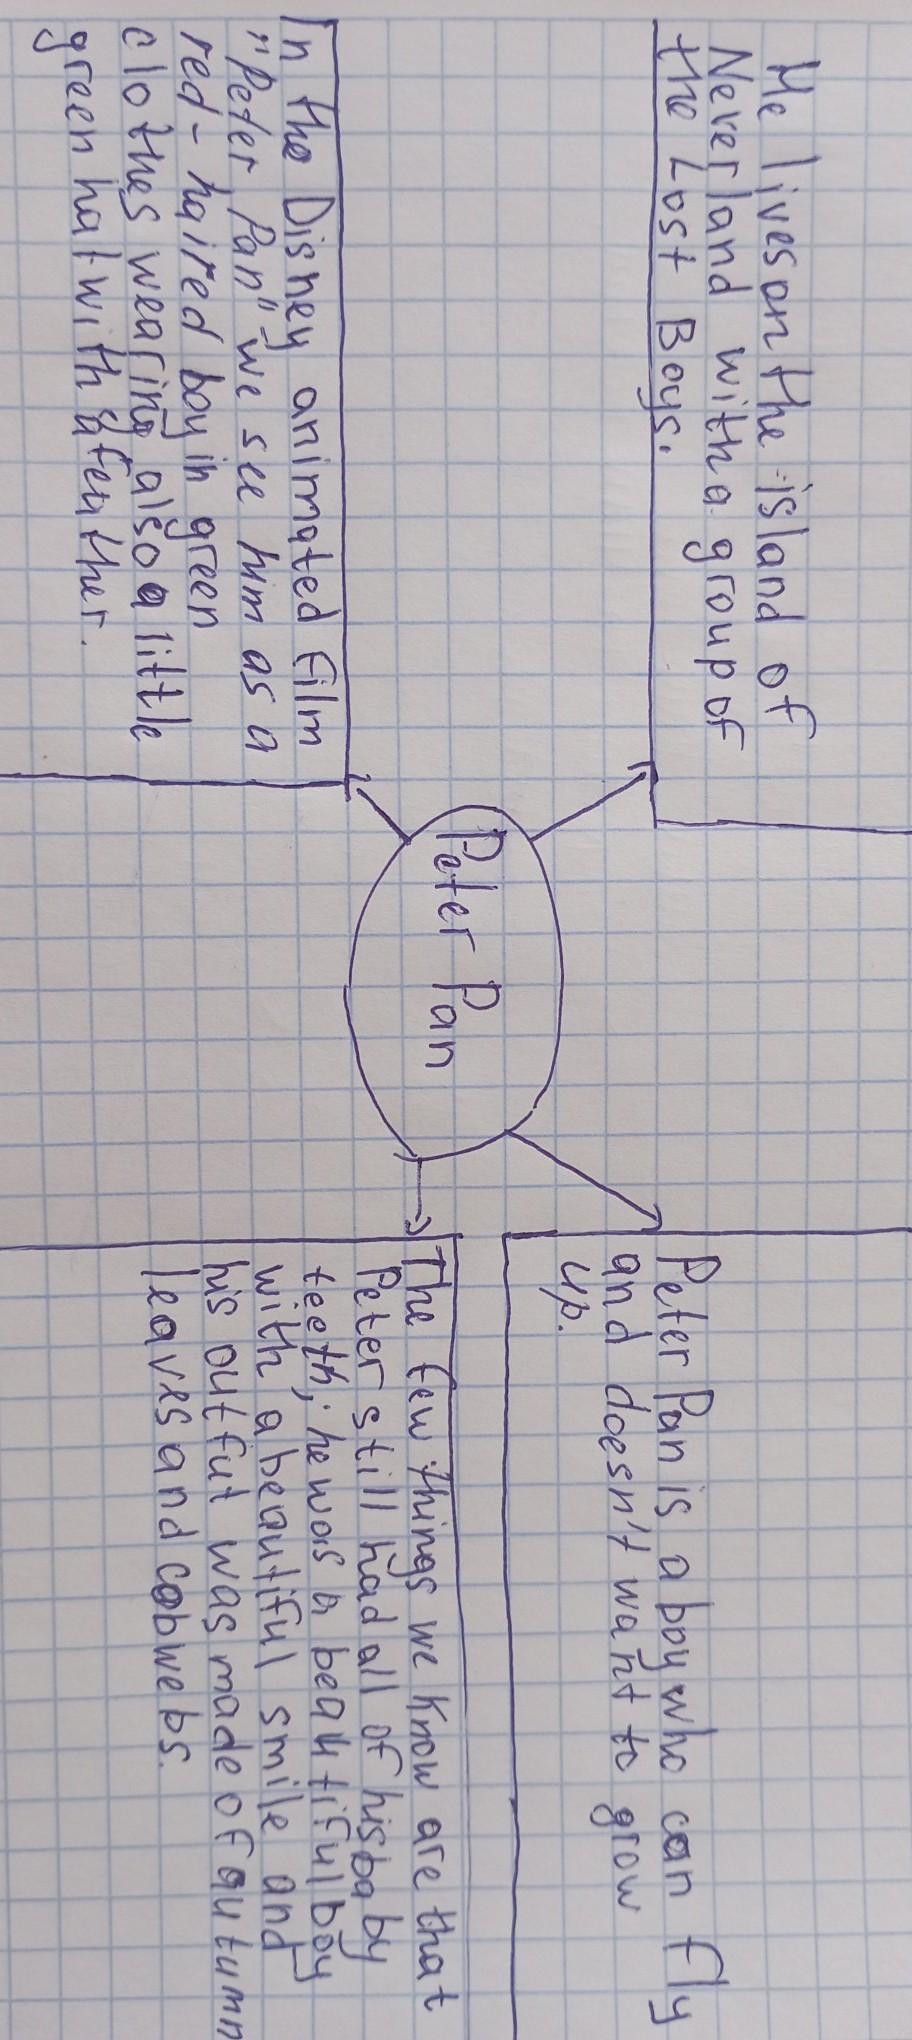 He lives on the island of
Neverland with a group of
the Lost Boys.
Peter Pan is a boy who can fly
and doesn't want to grow
up.
Peter Pan
In the Disney animated film
"Peter Pan" we see him as a
red-haired boy in green
clothes wearing also a little
green hat with a feather.
The few things we know are that
Peter still had all of his baby
teeth; he was a beautiful boy
with a beautiful smile and
his outfut was made of autumn
leaves and cobwebs.